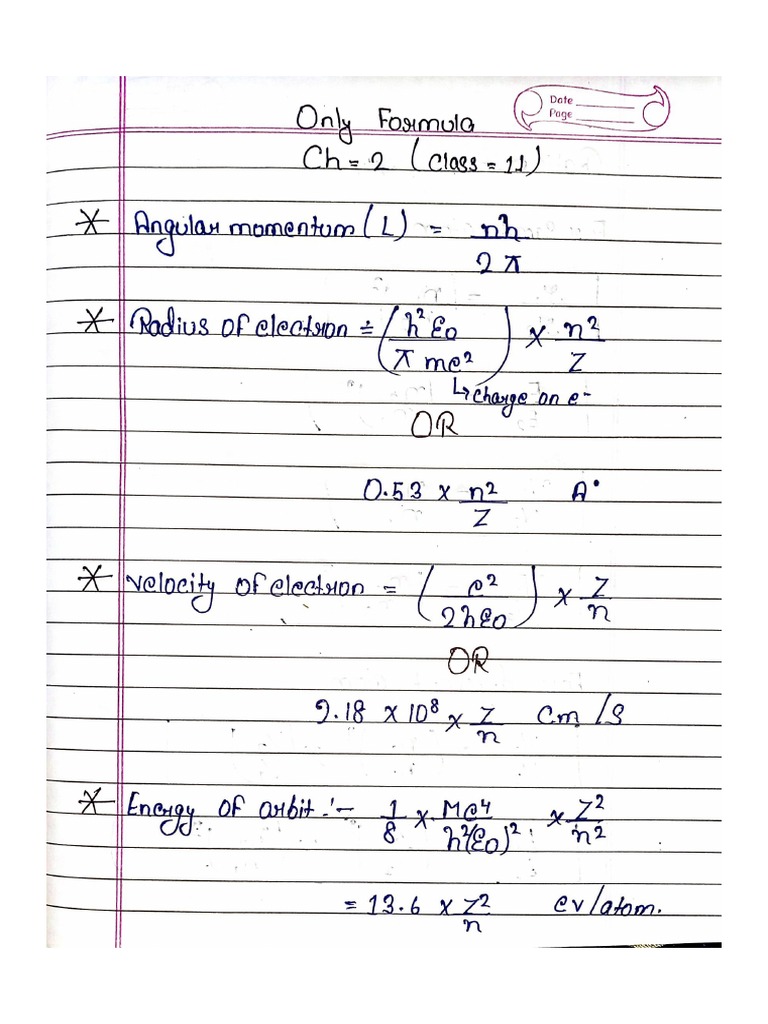 Date
Page
Only Formula
Ch = 2 (Class = 11)
* Angular momentum (L) = nh
2π
* Radius of electron = (h²ε0 / π me²) × n²/Z
↳ charge on e-
OR
0.53 × n²/Z A°
* Velocity of electron = (e² / 2hε0) × Z/n
OR
2.18 × 10⁸ × Z/n Cm/S
* Energy of orbit :- 1/8 × Me⁴/h²(ε0)² × Z²/n²
= 13.6 × Z²/n ev/atom.